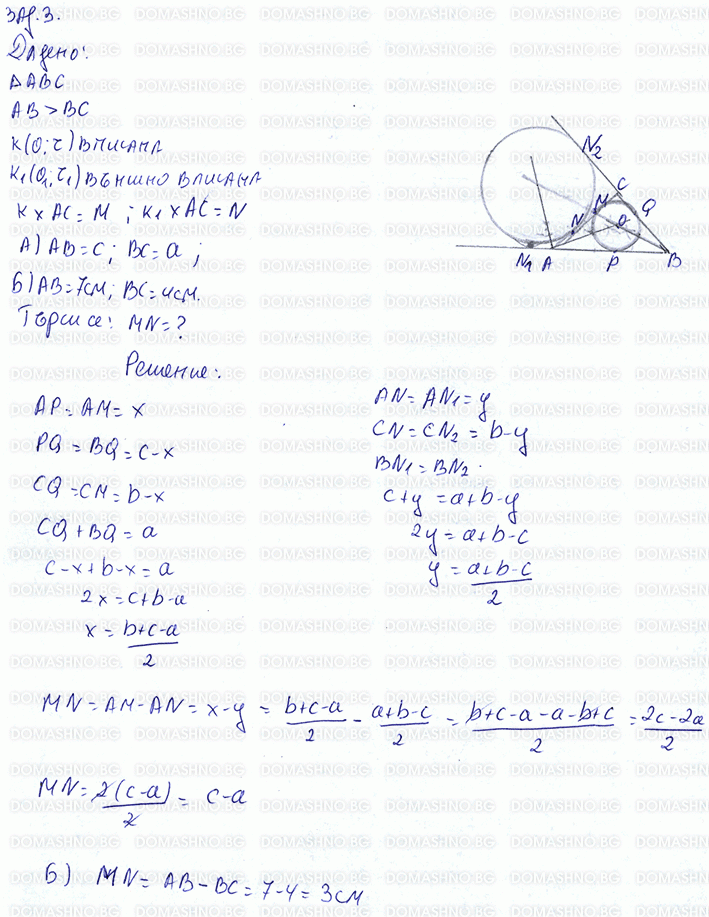 Зад. 3.
Дадено:
ΔABC
AB > BC
K(O; r) вписана
K₁(O₁; r₁) външно вписана
K x AC = M ; K₁ x AC = N
А) AB = c ; BC = a ;
Б) AB = 7см ; BC = 4см.
Търси се: MN = ?
N₂
C
M
Q
N
O
N₁
A
P
B
Решение:
AP = AM = x
PQ = BQ = c-x
CQ = CM = b-x
CQ + BQ = a
c-x+b-x = a
2x = c+b-a
x = (b+c-a)/2
AN = AN₁ = y
CN = CN₂ = b-y
BN₁ = BN₂.
c+y = a+b-y
2y = a+b-c
y = (a+b-c)/2
MN = AM-AN = x-y = (b+c-a)/2 - (a+b-c)/2 = (b+c-a-a-b+c)/2 = (2c-2a)/2
MN = 2(c-a)/2 = c-a
Б) MN = AB-BC = 7-4 = 3см
DOMASHNO.BG